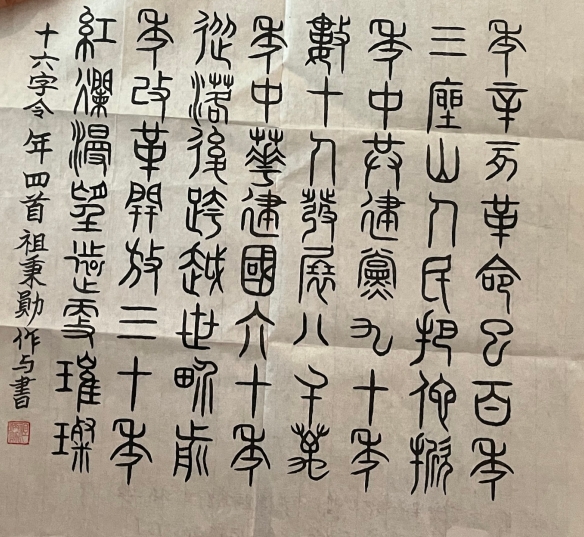 年辛亥革命已百年
三座山人民把他掀
年中共建黨九十年
數十人發展八千萬
年中華建國六十年
從落後跨越世界前
年改革開放三十年
紅瀾漫望遠處璀璨
十六字令 年四首 祖秉勛作与書